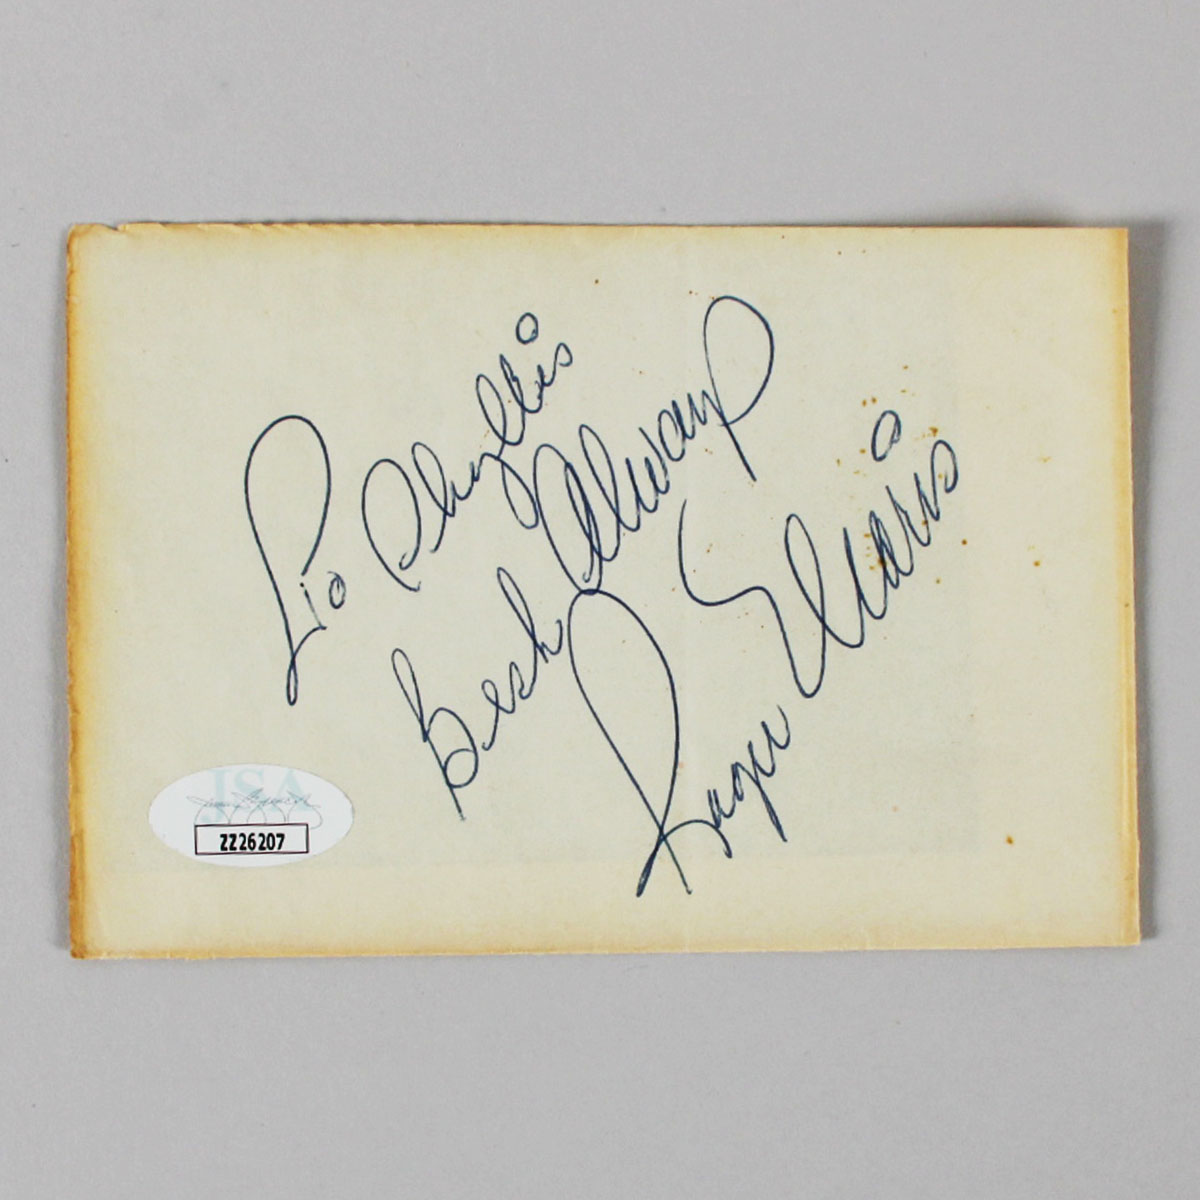 To Phyllis
Best Always
Roger Maris
JSA
ZZ26207